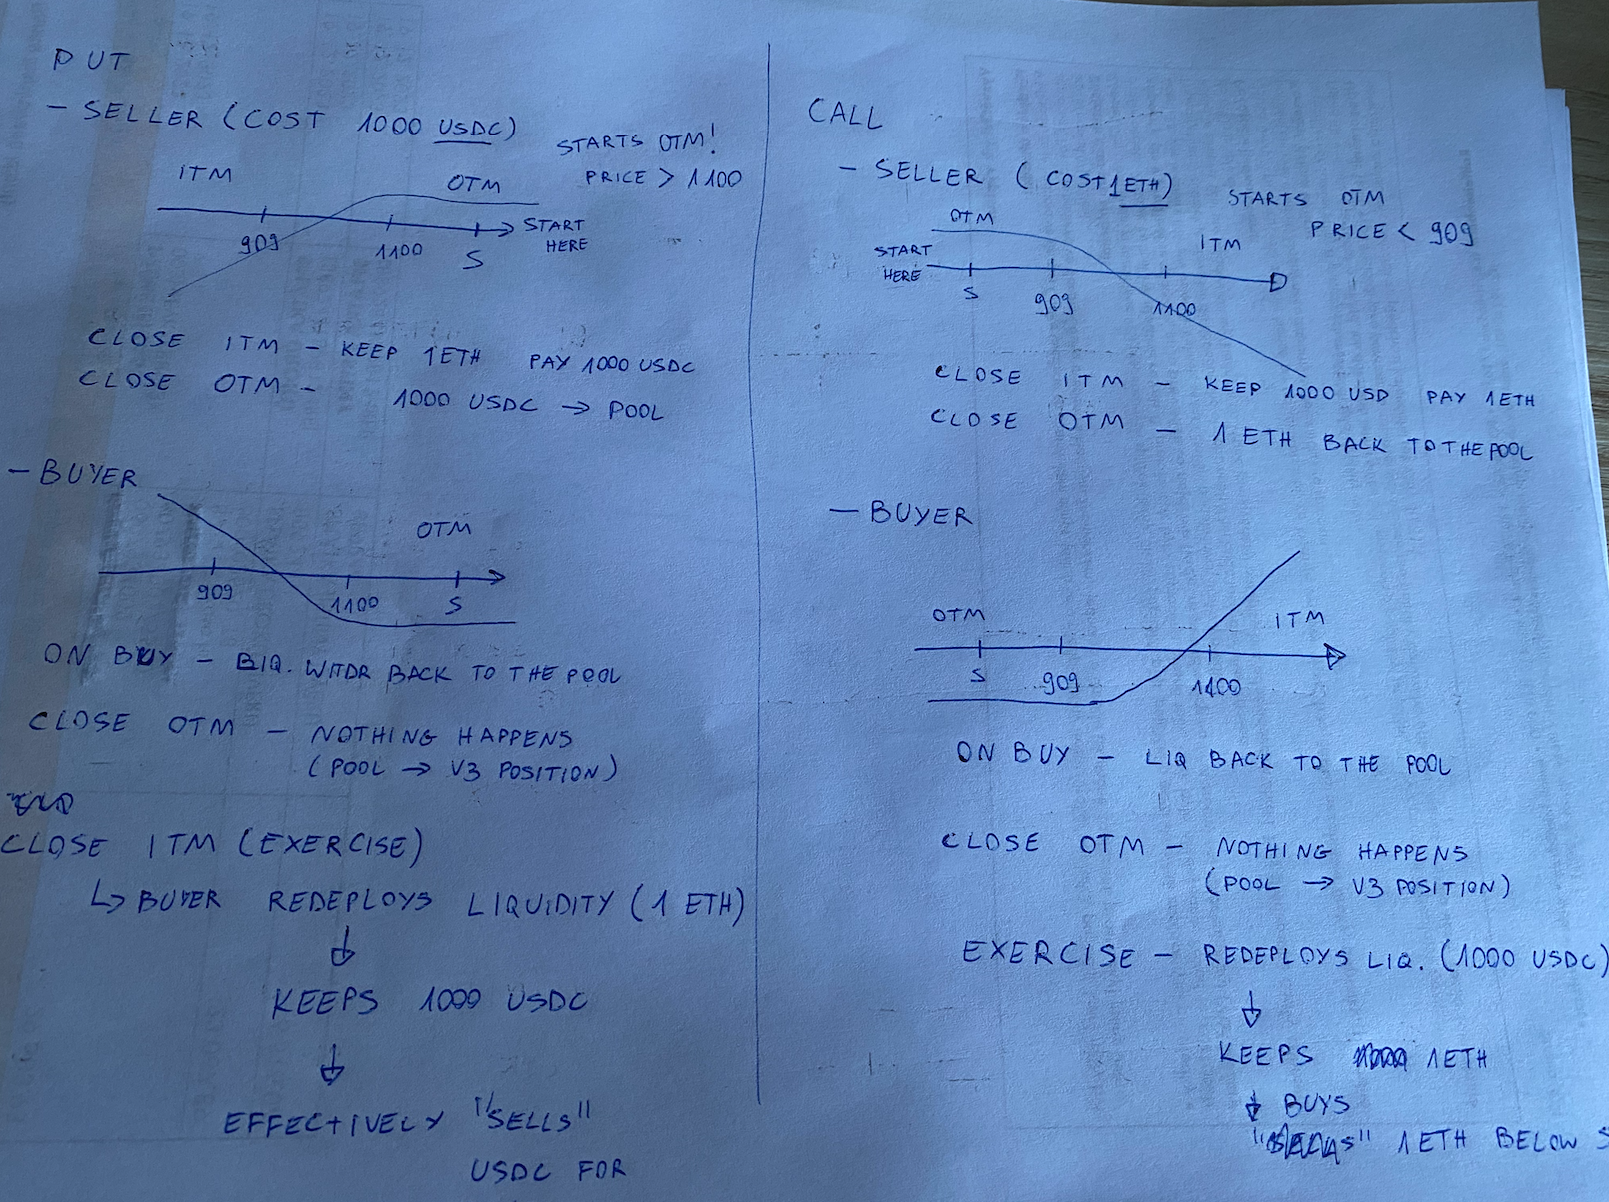 PUT
- SELLER (COST 1000 USDC)
STARTS OTM!
PRICE > 1100
ITM
OTM
909
1100
S
START
HERE
CLOSE ITM - KEEP 1ETH PAY 1000 USDC
CLOSE OTM - 1000 USDC → POOL
- BUYER
OTM
909
1100
S
ON BUY - LIQ. WITDR BACK TO THE POOL
CLOSE OTM - NOTHING HAPPENS
(POOL → V3 POSITION)
CLOSE ITM (EXERCISE)
↳ BUYER REDEPLOYS LIQUIDITY (1 ETH)
↓
KEEPS 1000 USDC
↓
EFFECTIVELY "SELLS"
USDC FOR
CALL
- SELLER (COST 1ETH)
STARTS OTM
PRICE < 909
OTM
ITM
START
HERE
S
909
1100
CLOSE ITM - KEEP 1000 USD PAY 1ETH
CLOSE OTM - 1 ETH BACK TO THE POOL
- BUYER
OTM
ITM
S
909
1100
ON BUY - LIQ BACK TO THE POOL
CLOSE OTM - NOTHING HAPPENS
(POOL → V3 POSITION)
EXERCISE - REDEPLOYS LIQ. (1000 USDC)
↓
KEEPS 1ETH
↓ BUYS
1ETH BELOW S